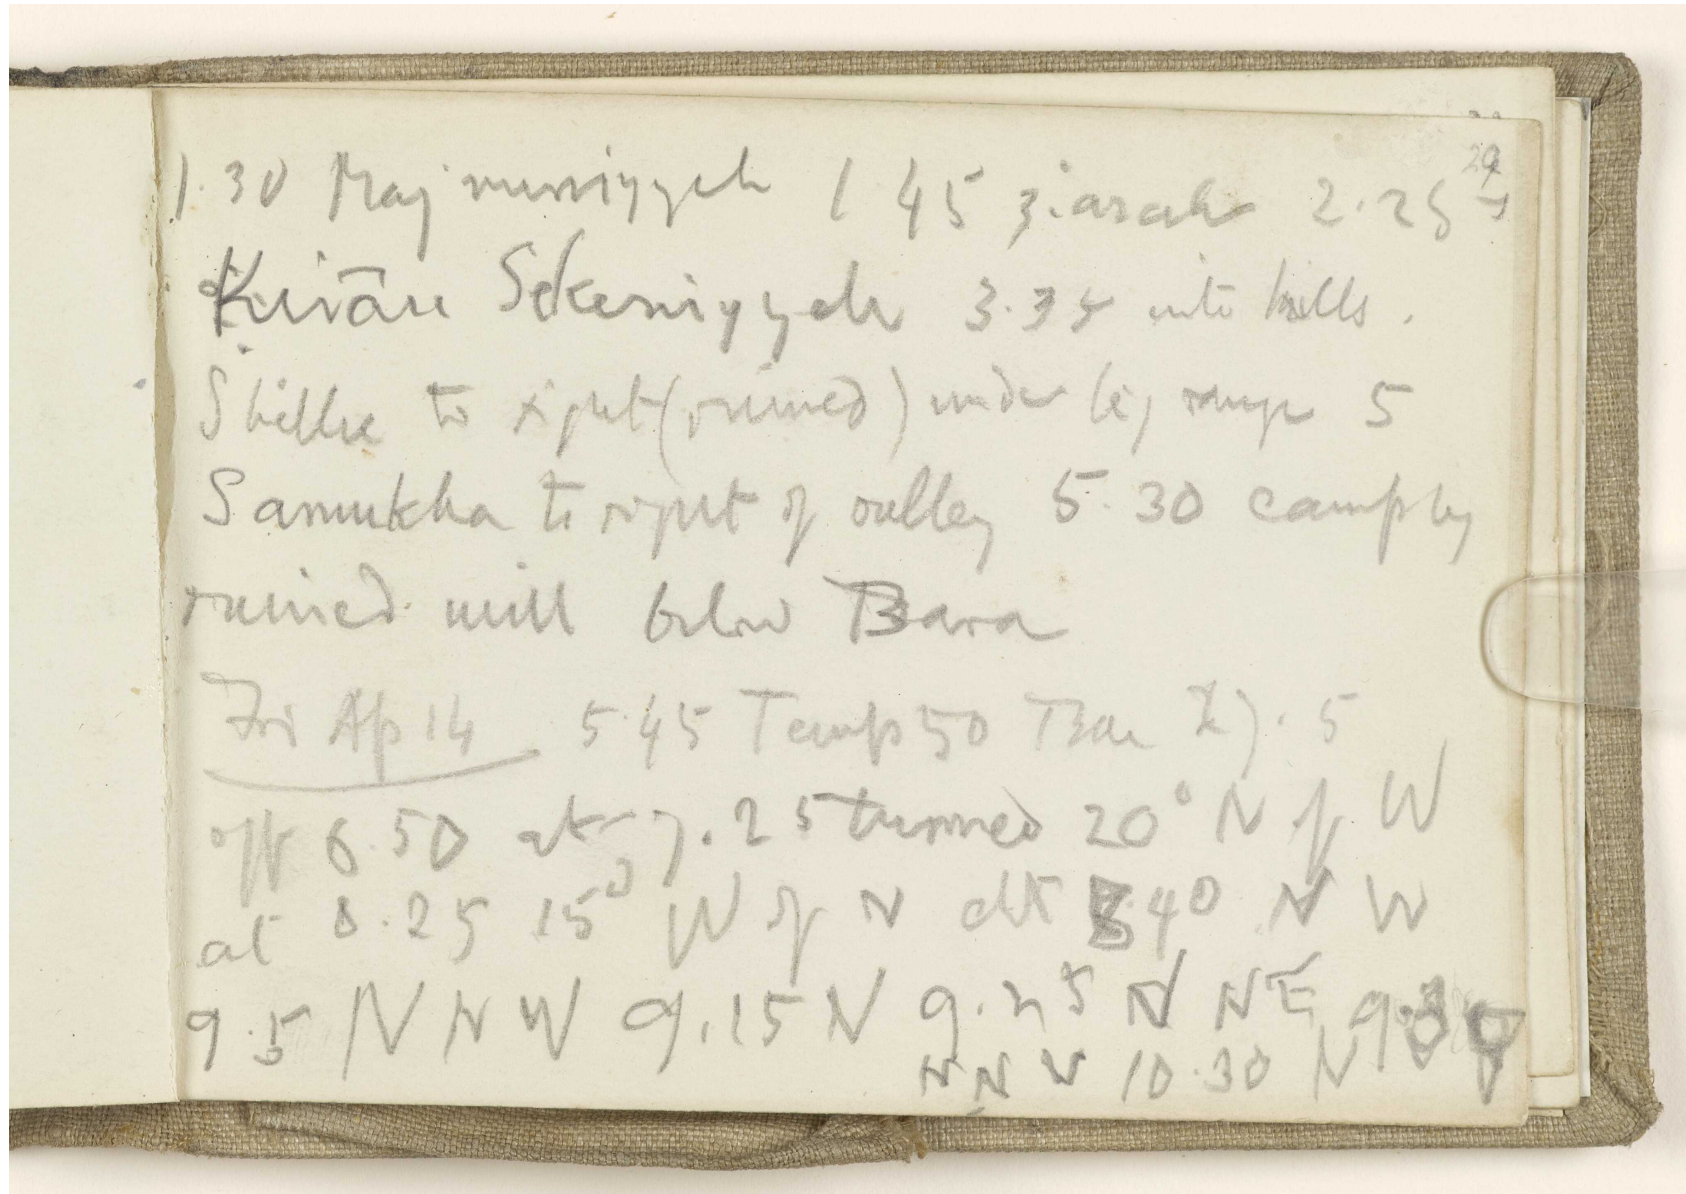 29
1.30 Majnuniyyeh 1 45 ziarah 2.25
Kirān Sekeniyyeh 3.35 into hills.
to right (ruined) under big range 5
Samukha to right of valley 5.30 camp by
ruined mill below Bara
Fri Ap 14 5.45 Temp 50 Bar 27.5
off 6.50 at 7.25 turned 20° N of W
at 8.25 15° W of N at 8.40 N W
9.5 N N W 9.15 N 9.25 N N E 9.30
N N W 10.30 N